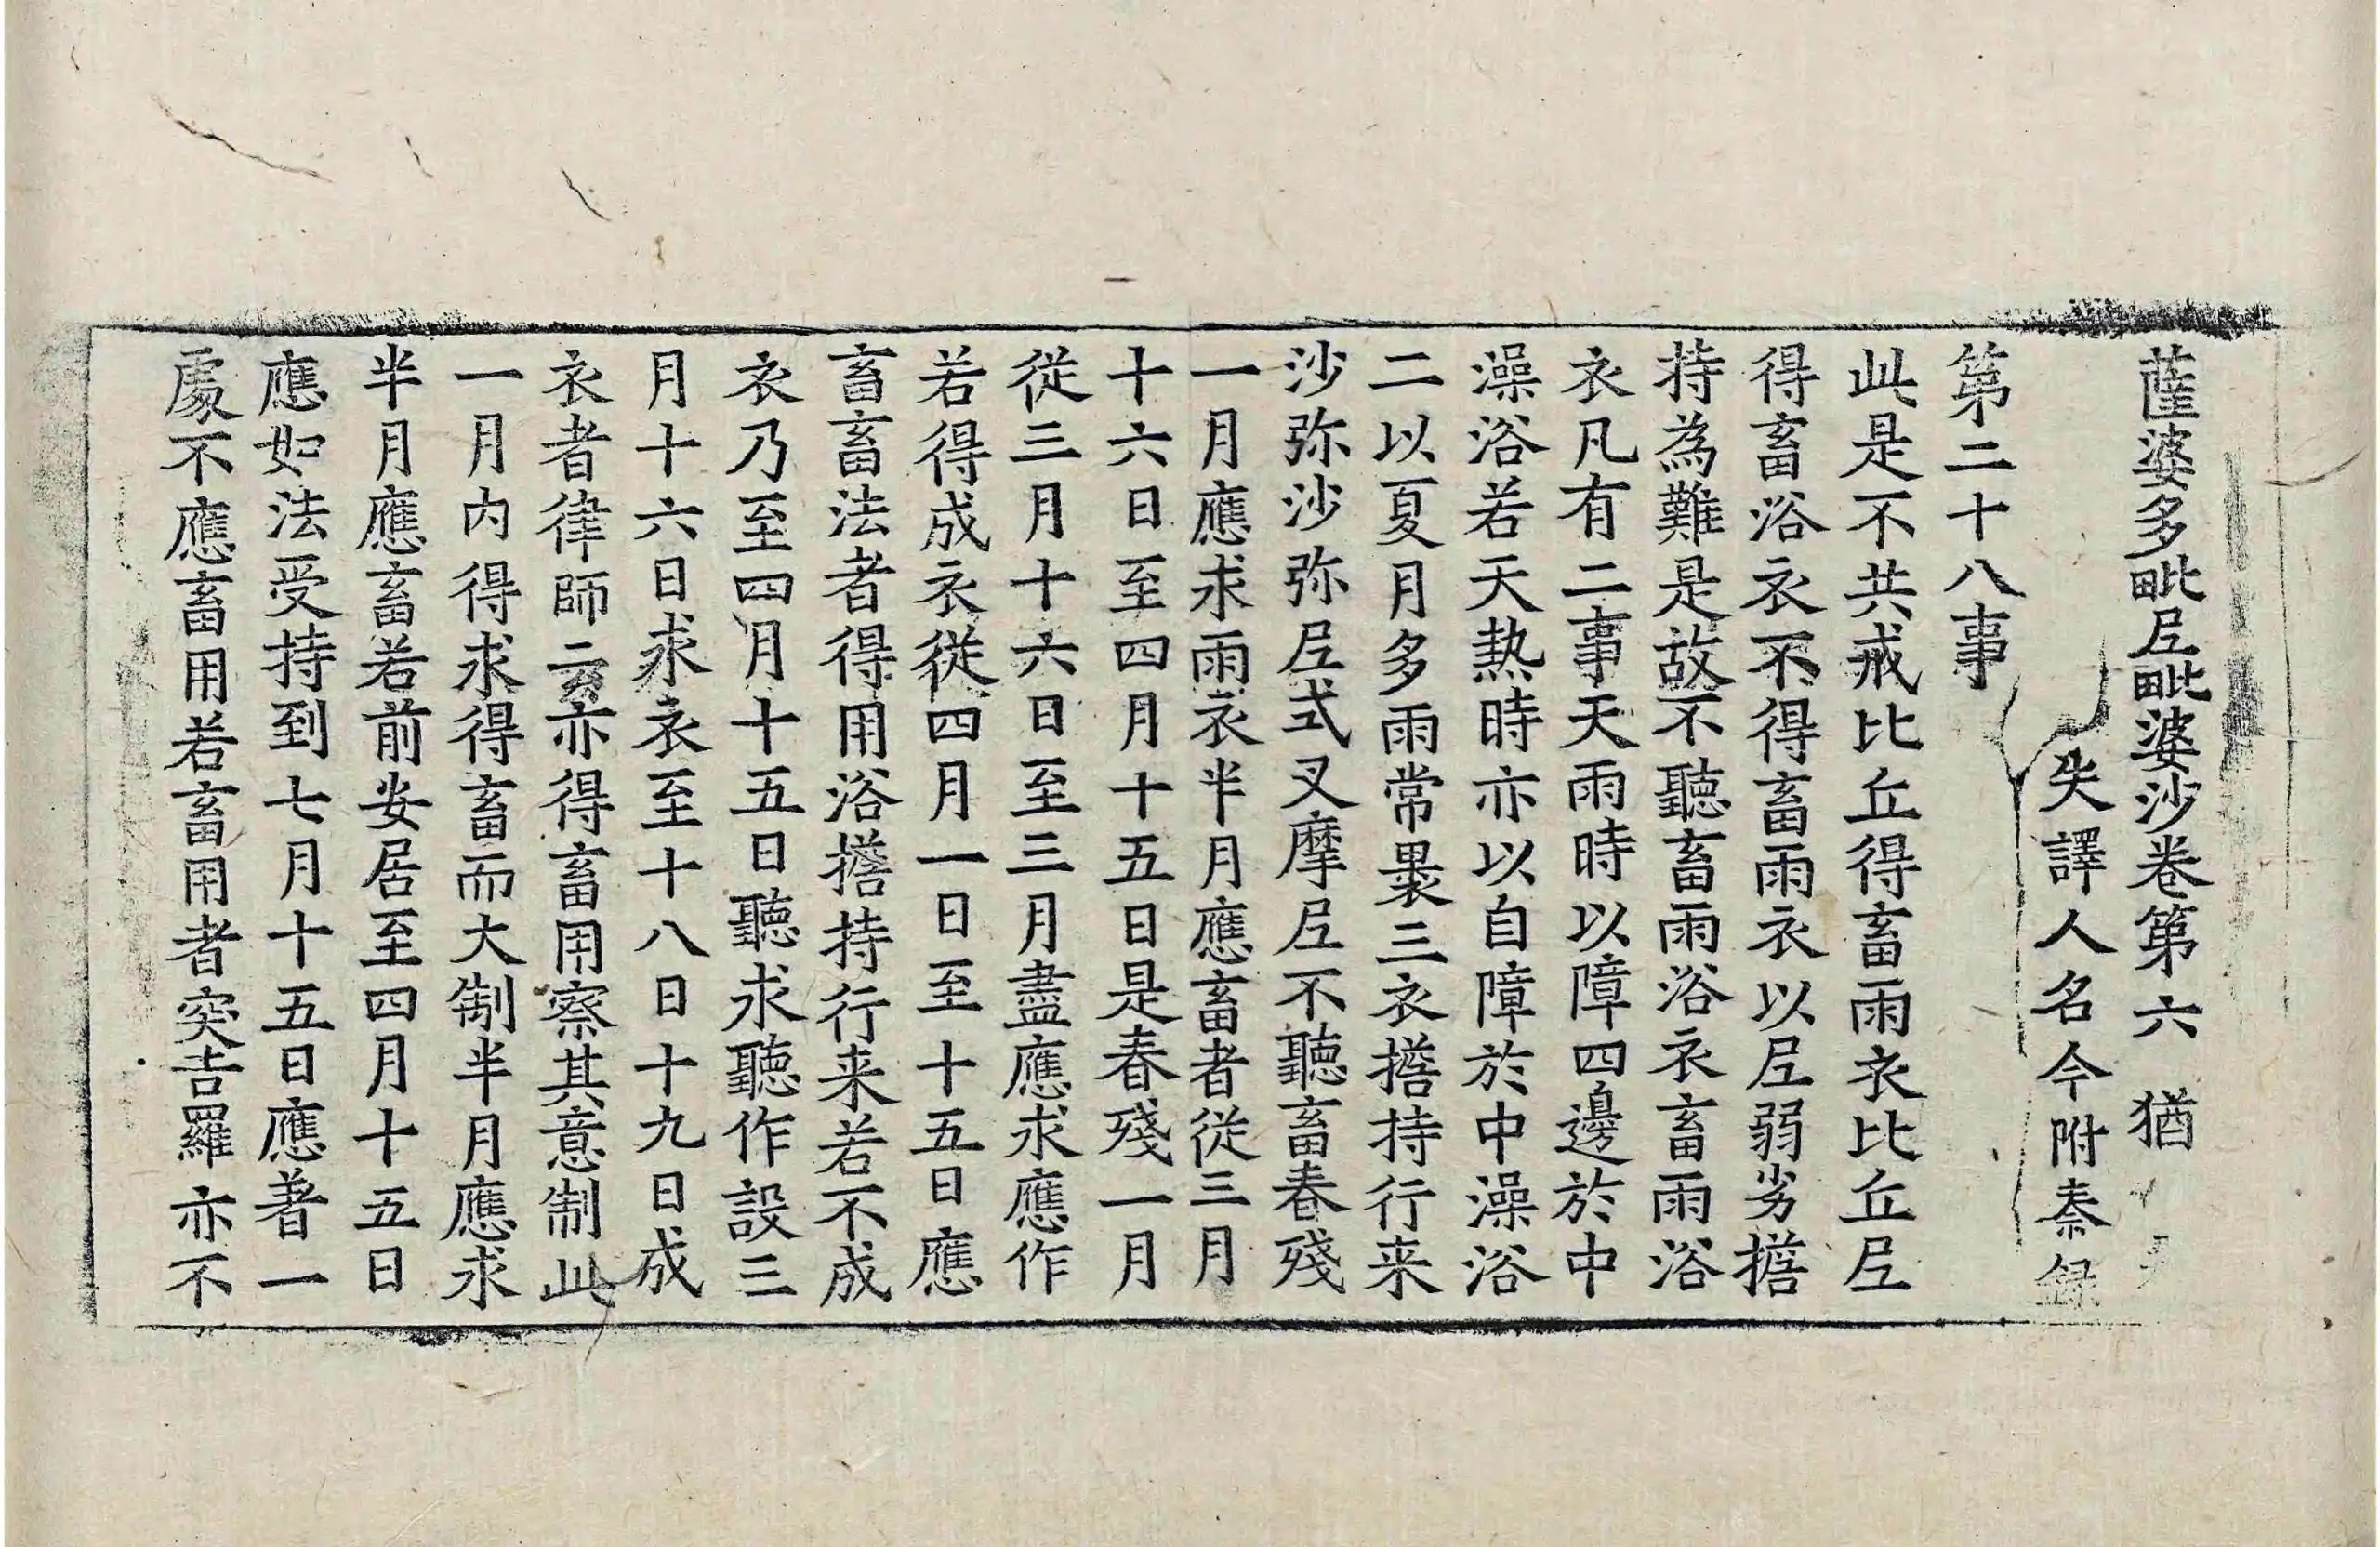 薩婆多毗尼毗婆沙卷第六 猶
失譯人名今附秦録
第二十八事
此是不共戒比丘得畜雨衣比丘尼
得畜浴衣不得畜雨衣以尼弱劣擔
持為難是故不聽畜雨浴衣畜雨浴
衣凡有二事天雨時以障四邊於中
澡浴若天熱時亦以自障於中澡浴
二以夏月多雨常褁三衣擔持行来
沙弥沙弥尼式叉摩尼不聽畜春殘
一月應求雨衣半月應畜者從三月
十六日至四月十五日是春殘一月
從三月十六日至三月盡應求應作
若得成衣從四月一日至十五日應
畜畜法者得用浴擔持行来若不成
衣乃至四月十五日聽求聽作設三
月十六日求衣至十八日十九日成
衣者律師云亦得畜用察其意制此
一月内得求得畜而大制半月應求
半月應畜若前安居至四月十五日
應如法受持到七月十五日應著一
處不應畜用若畜用者突吉羅亦不